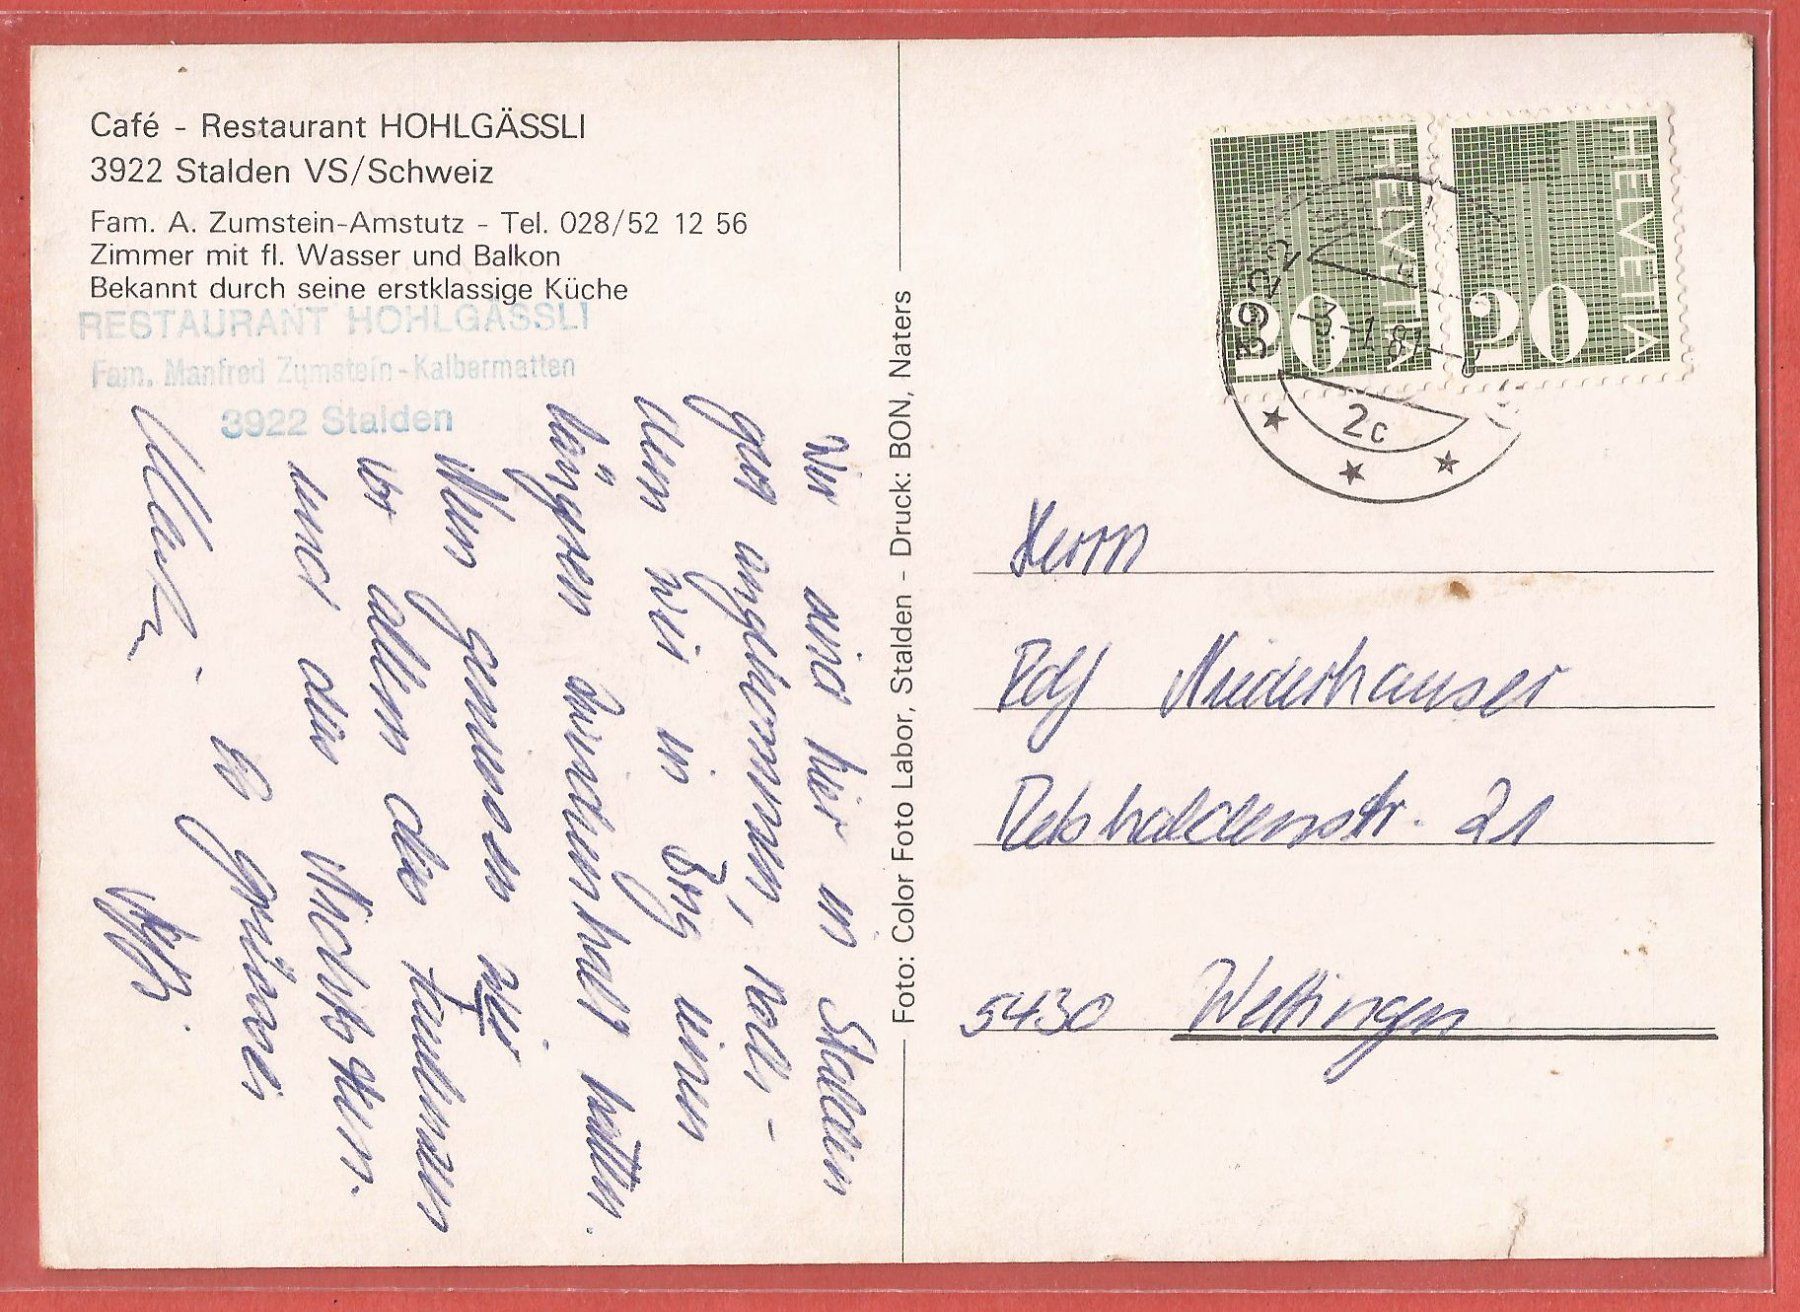 Café - Restaurant HOHLGÄSSLI
3922 Stalden VS/Schweiz
Fam. A. Zumstein-Amstutz - Tel. 028/52 12 56
Zimmer mit fl. Wasser und Balkon
Bekannt durch seine erstklassige Küche
RESTAURANT HOHLGÄSSLI
Fam. Manfred Zumstein-Kalbermatten
3922 Stalden
Wir sind hier in Stalden
gut angekommen, nach-
dem wir in Brig einen
längeren Aufenthalt hatten.
Nun geniessen wir
vor allem das
und das Nichtstun.
Foto: Color Foto Labor, Stalden - Druck: BON, Naters
HELVETIA
20
HELVETIA
20
3922
-3-1.81
2c
Herrn
Rolf Niederhauser
Rebhaldenstr. 21
5430 Wettingen